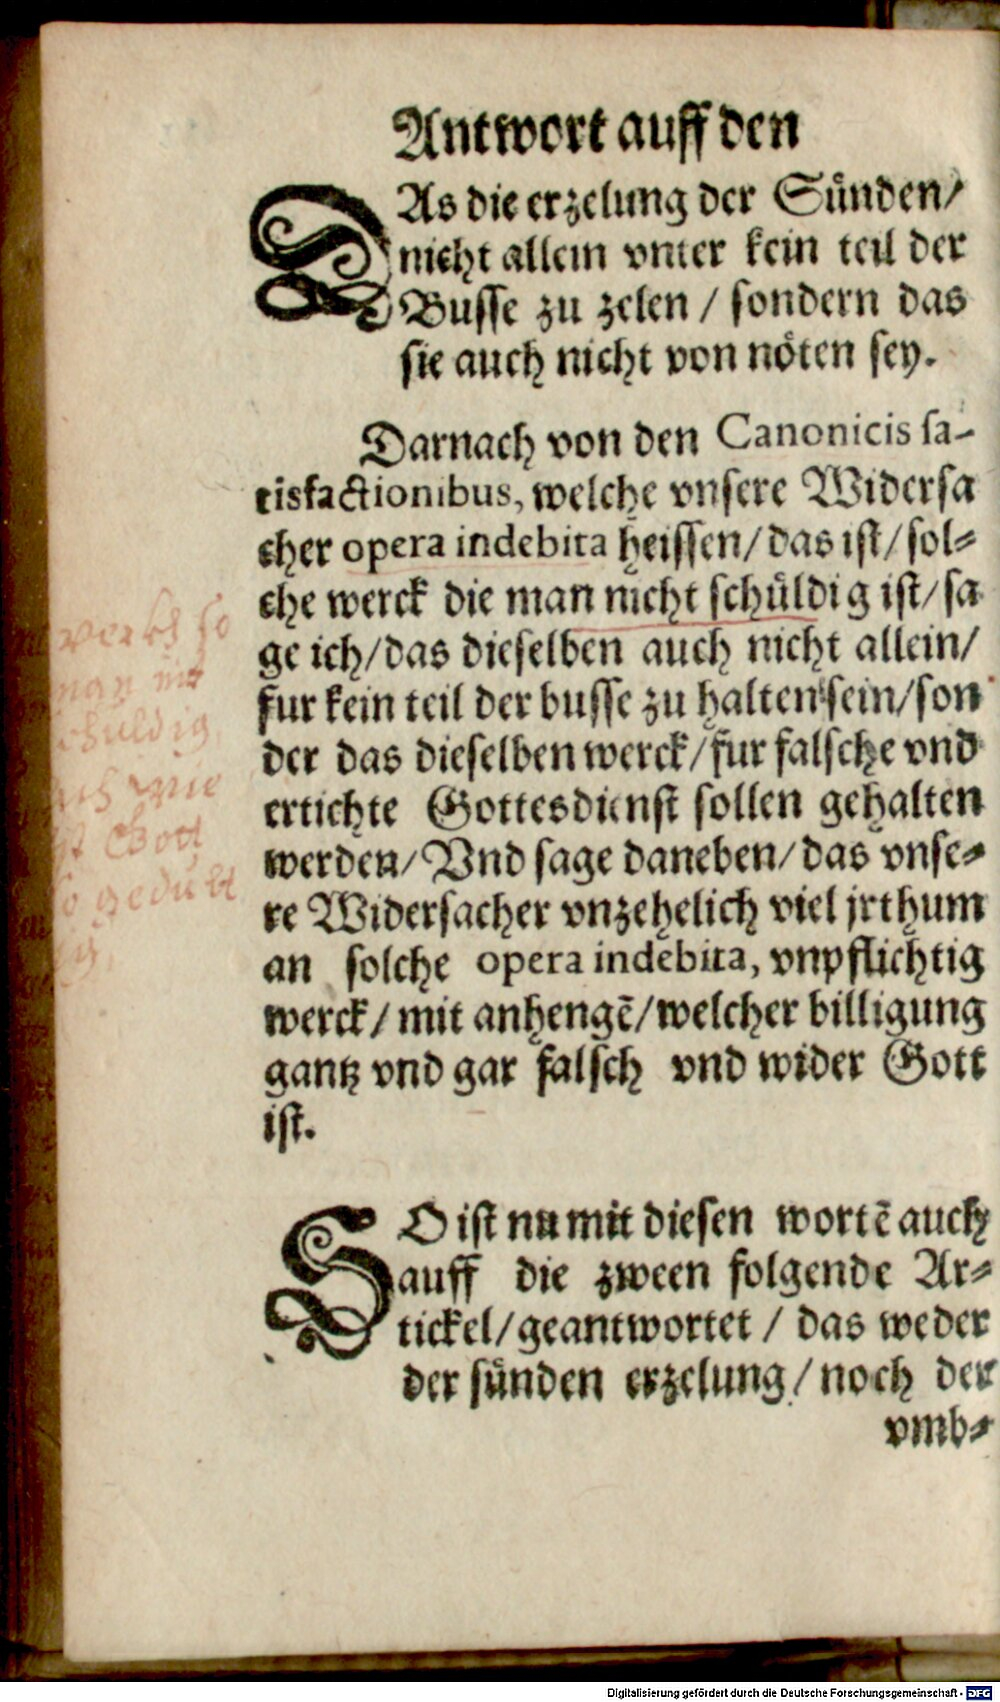 Antwort auff den
DAs die erzelung der Sünden/
nicht allein vnter kein teil der
Busse zu zelen / sondern das
sie auch nicht von nöten sey.
Darnach von den Canonicis sa-
tisfactionibus, welche vnsere Widersa
cher opera indebita heissen/ das ist/ sol-
che werck die man nicht schüldig ist/ sa
ge ich/ das dieselben auch nicht allein/
fur kein teil der busse zu halten sein/ son
der das dieselben werck/ fur falsche vnd
ertichte Gottesdienst sollen gehalten
werden/ Vnd sage daneben/ das vnse-
re Widersacher vnzehelich viel jrthum
an solche opera indebita, vnpflichtig
werck/ mit anhengē/ welcher billigung
gantz vnd gar falsch vnd wider Gott
ist.
SO ist nu mit diesen wortē auch
auff die zween folgende Ar-
tickel/ geantwortet / das weder
der sünden erzelung/ noch der
vmb-
werkh so
man nit
schuldig
wie
ist Gott
so gedult
ig,
Digitalisierung gefördert durch die Deutsche Forschungsgemeinschaft - DFG